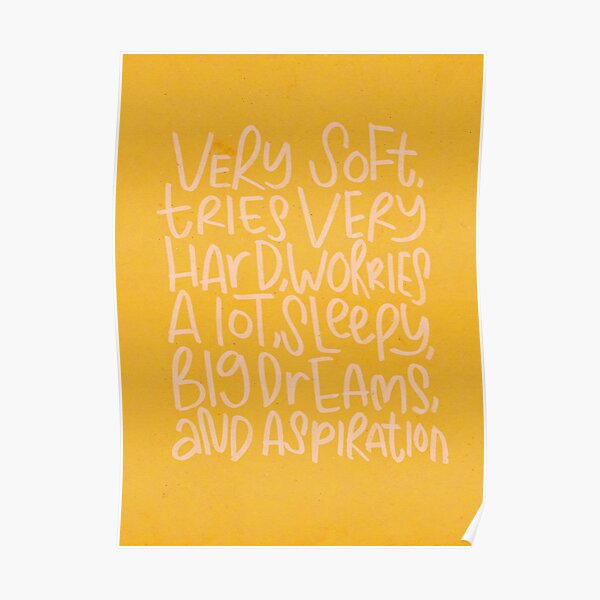 VERY SOFT,
tRIES VERY
HArD, WORRIES
A lOT, SLeepy,
BIg DrEAMS,
aND ASPIRATION